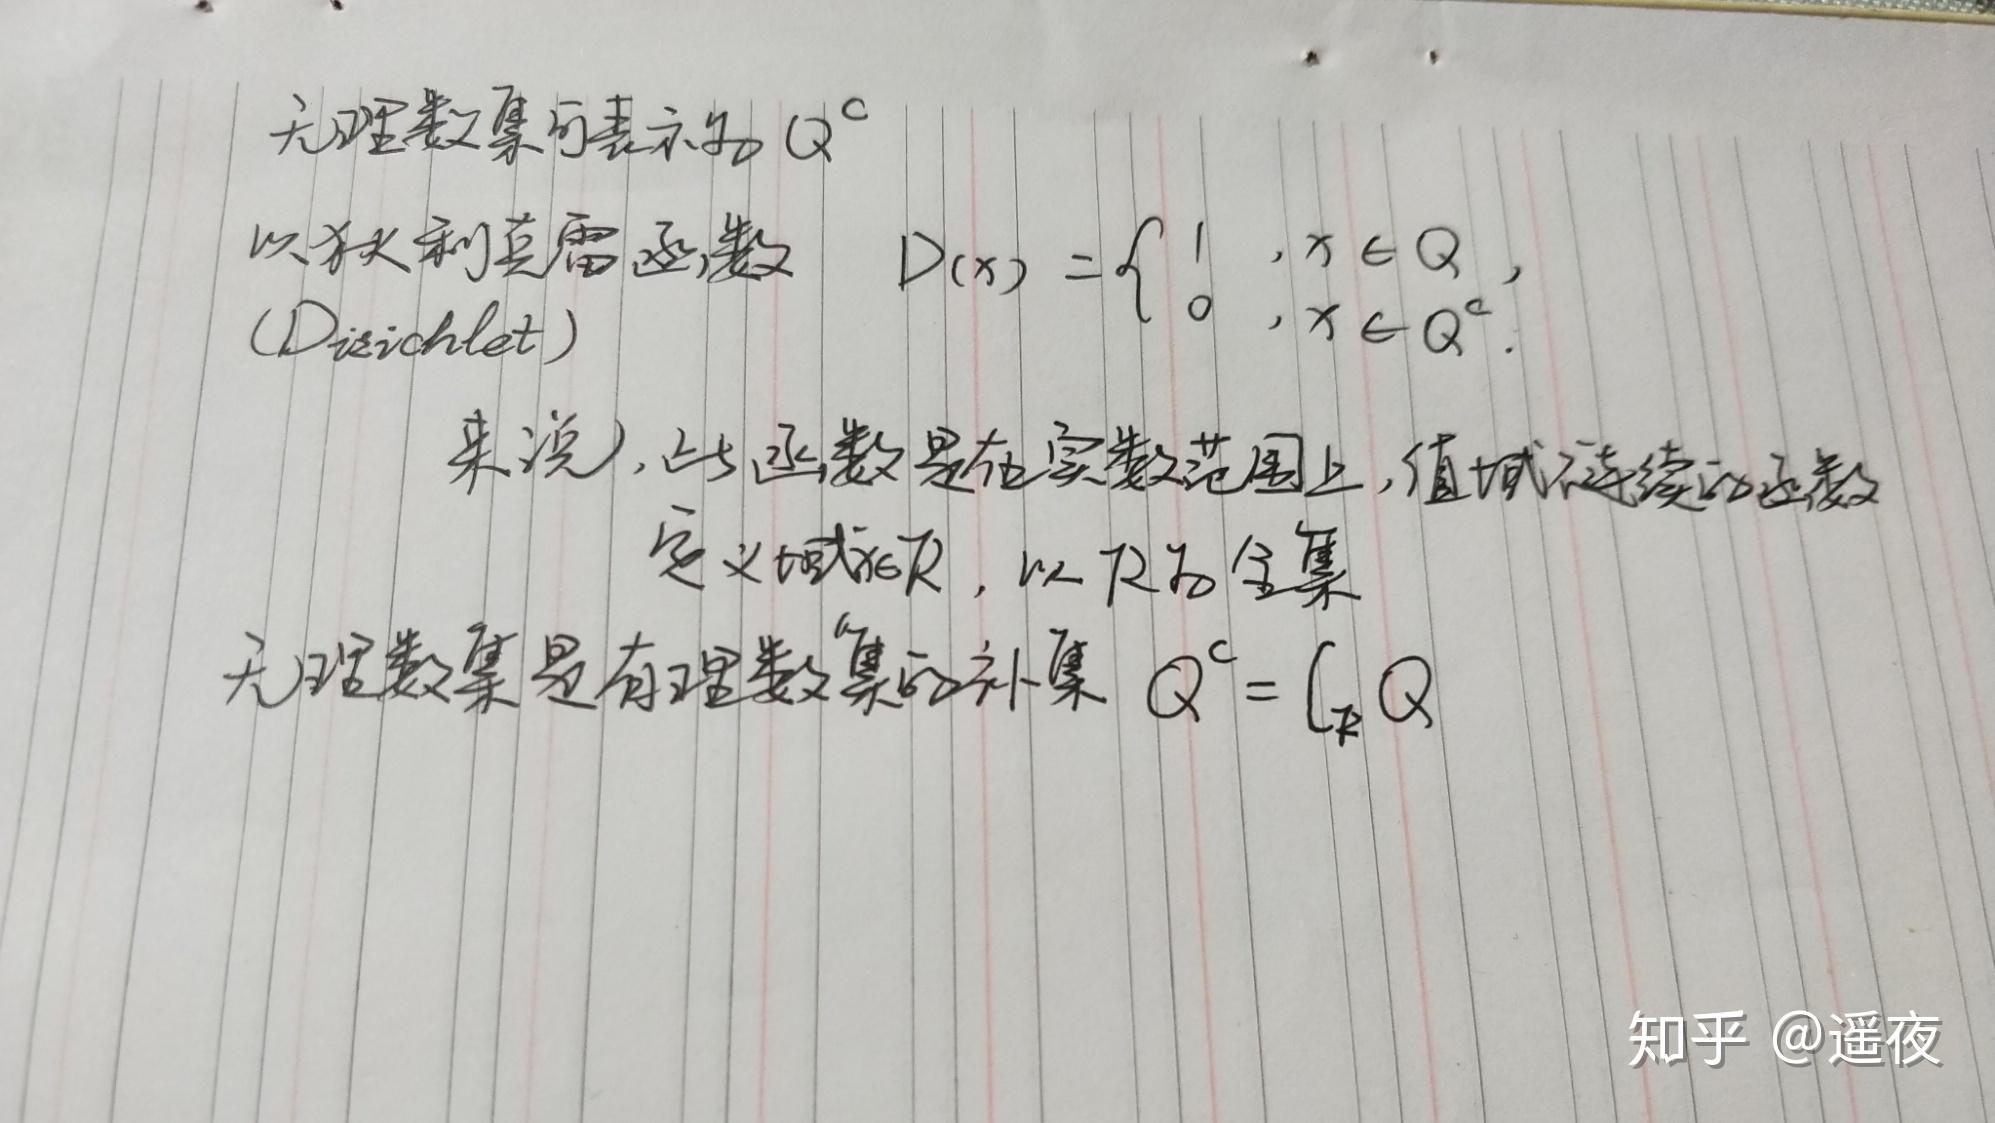 无理数集可表示为 Q^c
以狄利克雷函数 D(x) = { 1 , x ∈ Q ,
0 , x ∈ Q^c .
(Dirichlet)
来说,此函数是在实数范围上,值域不连续的函数
定义域x∈R,以R为全集
无理数集是有理数集的补集 Q^c = ∁_R Q
知乎 @遥夜